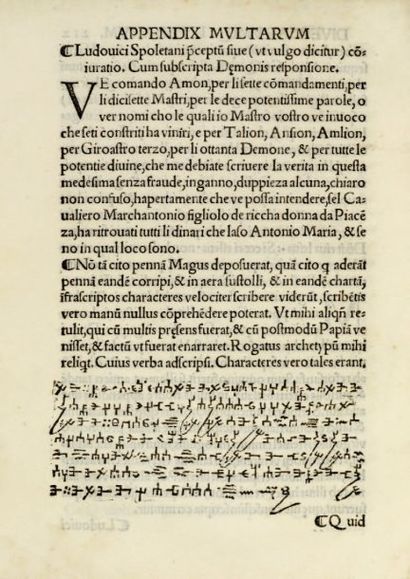 APPENDIX MVLTARVM
⸿Ludouici Spoletani p̃ceptũ siue (vt vulgo dicitur) cõ-
iuratio. Cum subscripta Dęmonis responsione.
VE comando Amon, per li sette cõmandamenti, per
li dicisette Mastri, per le dece potentissime parole, o
ver nomi cho le quali io Mastro vostro ve inuoco
che seti constriti ha viniri, e per Talion, Ansion, Amlion,
per Giroastro terzo, per li ottanta Demone, & per tutte le
potentie diuine, che me debiate scriuere la verita in questa
medesima senza fraude, inganno, duppieza alcuna, chiaro
non confuso, hapertamente che ve possa intendere, sel Ca-
ualiero Marchantonio figliolo de riccha donna da Piacẽ
za, ha ritrouati tutti li dinari che laso Antonio Maria, & se
no in qual loco sono.
⸿Nõ tã cito pennã Magus deposuerat, quã cito q aderãt
pennã eandẽ corripi, & in aera sustolli, & in eandẽ chartã,
ĩfrascriptos characteres velociter scribere viderũt, scribẽtis
vero manũ nullus cõprehẽdere poterat. Vt mihi aliqñ re-
tulit, qui cũ multis pręsens fuerat, & cũ postmodũ Papiã ve
nisset, & factũ vt fuerat enarraret. Rogatus archetypũ mihi
reliqt. Cuius verba adscripsi. Characteres vero tales erant.
⸿Quid